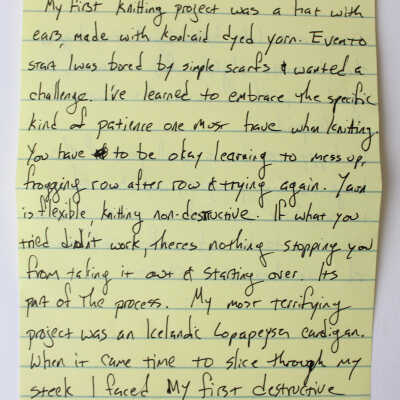 My first knitting project was a hat with
ears, made with kool-aid dyed yarn. Even to
start I was bored by simple scarfs & wanted a
challenge. I've learned to embrace the specific
kind of patience one must have when knitting.
You have to be okay learning to mess up,
frogging row after row & trying again. Yarn
is flexible, knitting non-destructive. If what you
tried didn't work, theres nothing stopping you
from taking it out & starting over. Its
part of the process. My most terrifying
project was an Icelandic Lopapeysa cardigan.
When it came time to slice through my
steek I faced my first destructive